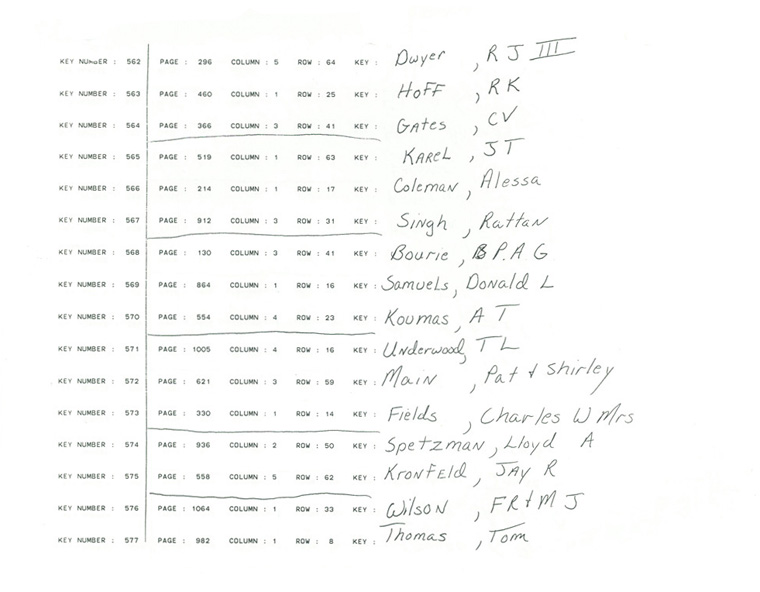 KEY NUMBER : 562 PAGE : 296 COLUMN : 5 ROW : 64 KEY : Dwyer , R J III
KEY NUMBER : 563 PAGE : 460 COLUMN : 1 ROW : 25 KEY : Hoff , RK
KEY NUMBER : 564 PAGE : 366 COLUMN : 3 ROW : 41 KEY : Gates , CV
KEY NUMBER : 565 PAGE : 519 COLUMN : 1 ROW : 63 KEY : Karel , JT
KEY NUMBER : 566 PAGE : 214 COLUMN : 1 ROW : 17 KEY : Coleman , Alessa
KEY NUMBER : 567 PAGE : 912 COLUMN : 3 ROW : 31 KEY : Singh , Rattan
KEY NUMBER : 568 PAGE : 130 COLUMN : 3 ROW : 41 KEY : Bourie , B P. A G
KEY NUMBER : 569 PAGE : 864 COLUMN : 1 ROW : 16 KEY : Samuels, Donald L
KEY NUMBER : 570 PAGE : 554 COLUMN : 4 ROW : 23 KEY : Koumas , A T
KEY NUMBER : 571 PAGE : 1005 COLUMN : 4 ROW : 16 KEY : Underwood, TL
KEY NUMBER : 572 PAGE : 621 COLUMN : 3 ROW : 59 KEY : Main , Pat & Shirley
KEY NUMBER : 573 PAGE : 330 COLUMN : 1 ROW : 14 KEY : Fields , Charles W Mrs
KEY NUMBER : 574 PAGE : 936 COLUMN : 2 ROW : 50 KEY : Spetzman , Lloyd A
KEY NUMBER : 575 PAGE : 558 COLUMN : 5 ROW : 62 KEY : Kronfeld , Jay R
KEY NUMBER : 576 PAGE : 1064 COLUMN : 1 ROW : 33 KEY : Wilson , FR & M J
KEY NUMBER : 577 PAGE : 982 COLUMN : 1 ROW : 8 KEY : Thomas , Tom